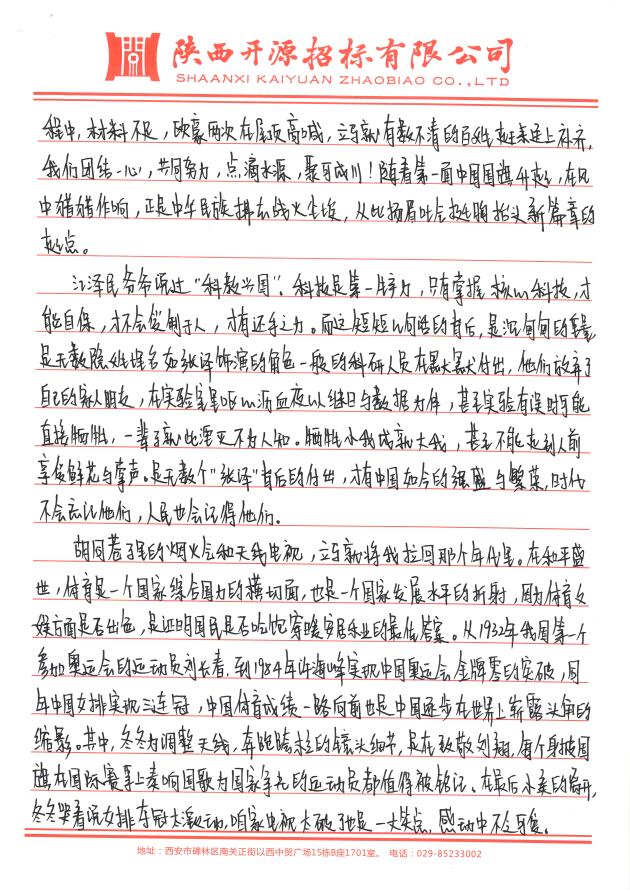 陕西开源招标有限公司
SHAANXI KAIYUAN ZHAOBIAO CO.,LTD
程中,材料不足,欧豪两次在屋顶高喊,立马就有数不清的百姓赶来送上补齐。
我们团结一心,共同努力,点滴水源,聚可成川!随着第一面中国国旗升起,在风
中猎猎作响,正是中华民族拂去战火尘埃,从此扬眉吐气挺胸抬头新篇章的
起点。
江泽民爷爷讲过"科教兴国"。科技是第一生产力,只有掌握核心科技,才
能自保,才不会受制于人,才有还手之力。而这短短几句话的背后,是沉甸甸的重量
是无数隐姓埋名如张译饰演的角色一般的科研人员在默默付出,他们放弃了
自己的家人朋友,在实验室里呕心沥血夜以继日与数据为伴,甚至实验有误时可能
直接牺牲,一辈子就此湮灭不为人知。牺牲小我成就大我,甚至不能走到人前
享受鲜花与掌声。是无数个"张译"背后的付出,才有中国如今的强盛与繁荣,时代
不会忘记他们,人民也会记得他们。
胡同巷子里的烟火气和天线电视,立马就将我拉回那个年代里。在和平盛
世,体育是一个国家综合国力的横切面,也是一个国家发展水平的折射,因为体育文
娱方面是否出色,是证明国民是否吃饱穿暖安居乐业的最佳答案。从1932年我国第一个
参加奥运会的运动员刘长春,到1984年许海峰实现中国奥运会金牌零的突破,同
年中国女排实现三连冠,中国体育成绩一路向前也是中国逐步在世界上崭露头角的
缩影。其中,冬冬为调整天线,奔跑跨栏的镜头细节,是在致敬刘翔,每个身披国
旗在国际赛事上奏响国歌为国家争光的运动员都值得被铭记。在最后小美的离开,
冬冬哭着说女排夺冠太激动,咱家电视太破了也是一大笑点,感动中不会可笑。
地址:西安市碑林区南关正街以西中贸广场15栋B座1701室。 电话:029-85233002